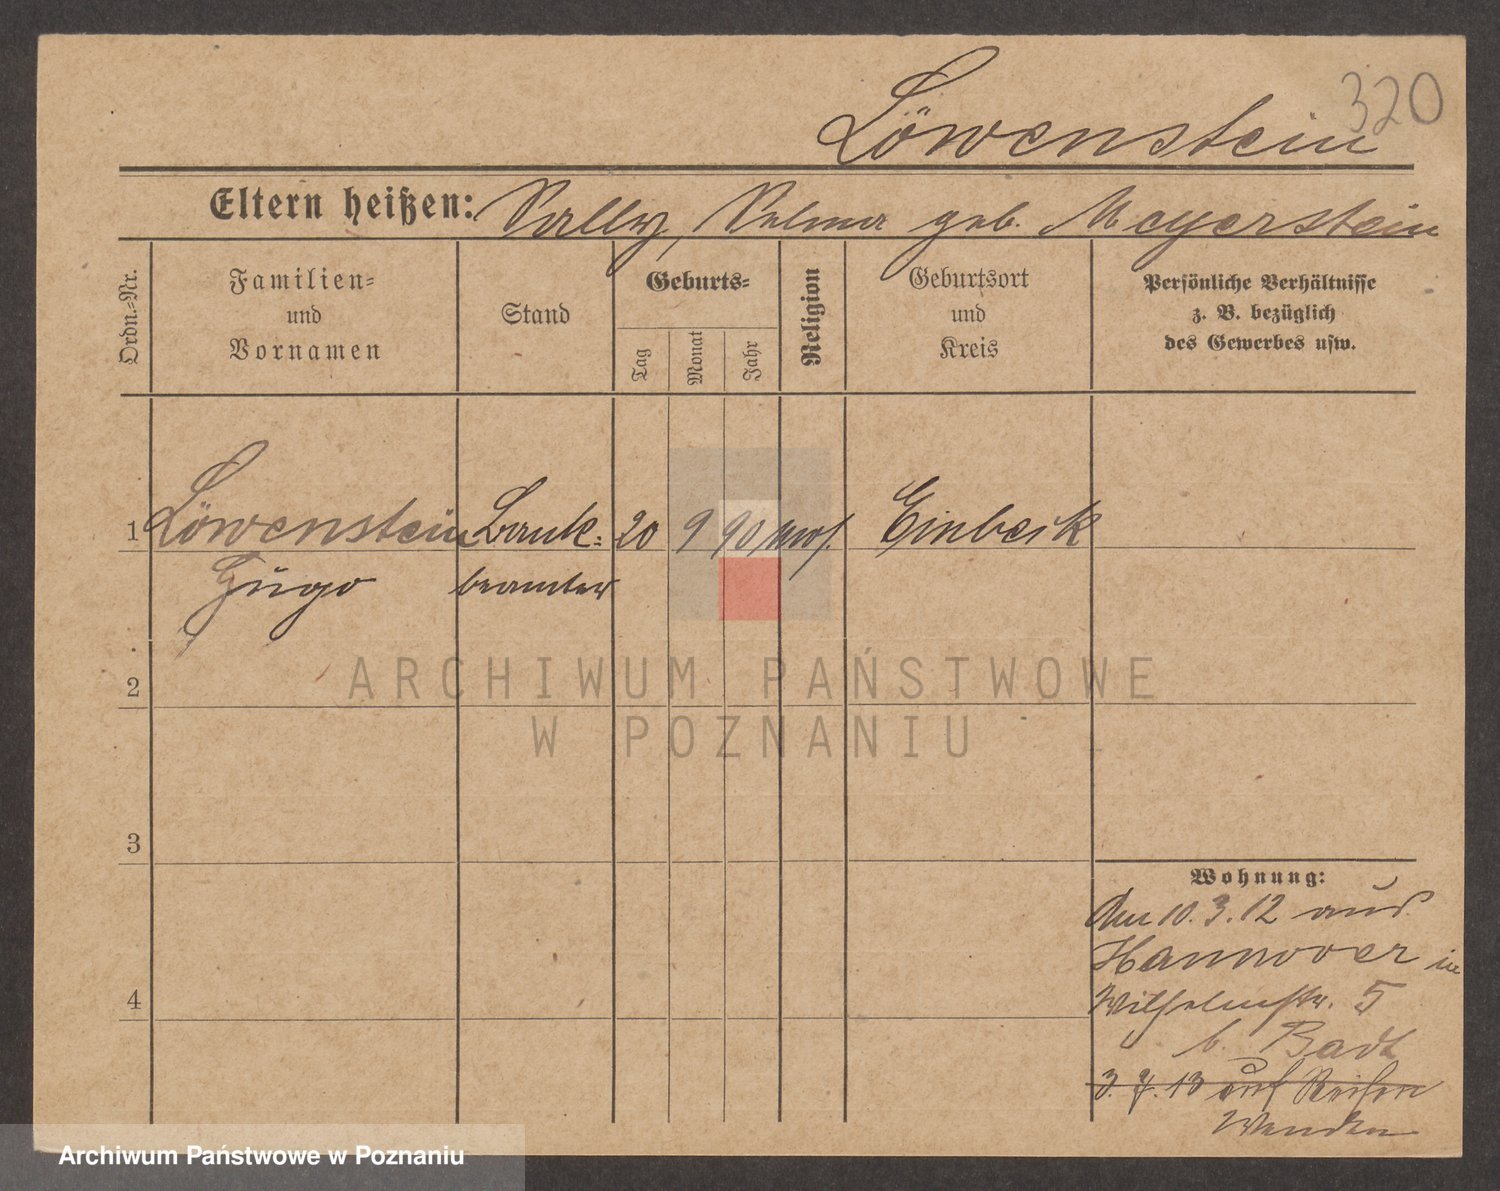 320
Löwenstein
Eltern heißen: Sally, Selma geb. Meyerstein
Ordn.-Nr.
Familien-
und
Vornamen
Stand
Geburts-
Tag
Monat
Jahr
Religion
Geburtsort
und
Kreis
Persönliche Verhältnisse
z. B. bezüglich
des Gewerbes usw.
1 Löwenstein Bank- 20 9 90 mos. Einbeck
Hugo beamter
2
ARCHIWUM PAŃSTWOWE
W POZNANIU
3
Wohnung:
Am 10.3.12 aus
Hannover in
Wilhelmstr. 5
4
b. Badt
3. 7. 13 auf Reisen
Wenden
Archiwum Państwowe w Poznaniu